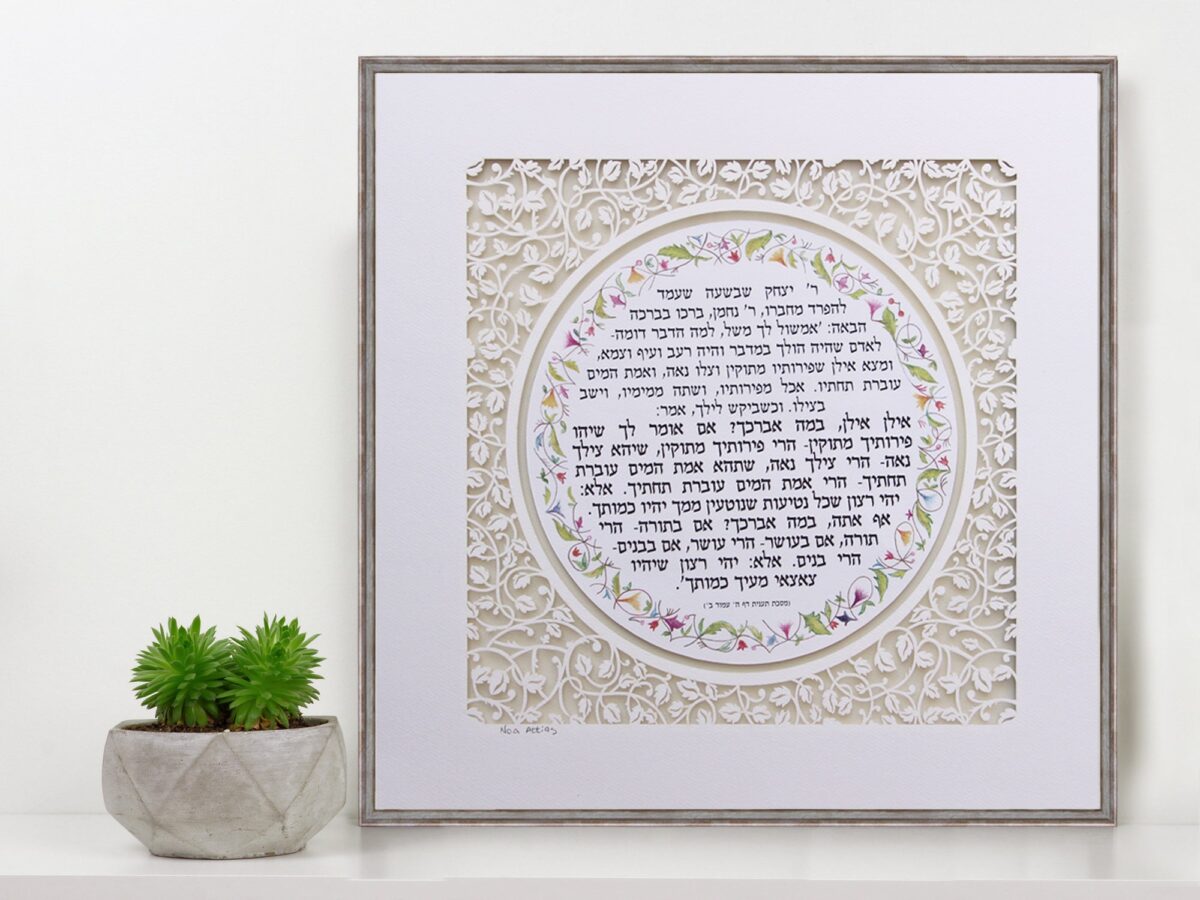 ר' יצחק שבשעה שעמד
להפרד מחברו, ר' נחמן, ברכו בברכה
הבאה: 'אמשול לך משל, למה הדבר דומה-
לאדם שהיה הולך במדבר והיה רעב ועיף וצמא,
ומצא אילן שפירותיו מתוקין וצלו נאה, ואמת המים
עוברת תחתיו. אכל מפירותיו, ושתה ממימיו, וישב
בצילו. וכשביקש לילך, אמר:
אילן אילן, במה אברכך? אם אומר לך שיהו
פירותיך מתוקין- הרי פירותיך מתוקין, שיהא צילך
נאה- הרי צילך נאה, שתהא אמת המים עוברת
תחתיך- הרי אמת המים עוברת תחתיך. אלא:
יהי רצון שכל נטיעות שנוטעין ממך יהיו כמותך.
אף אתה, במה אברכך? אם בתורה- הרי
תורה, אם בעושר- הרי עושר, אם בבנים-
הרי בנים. אלא: יהי רצון שיהיו
צאצאי מעיך כמותך'.
(מסכת תענית דף ה' עמוד ב')
Noa Attias